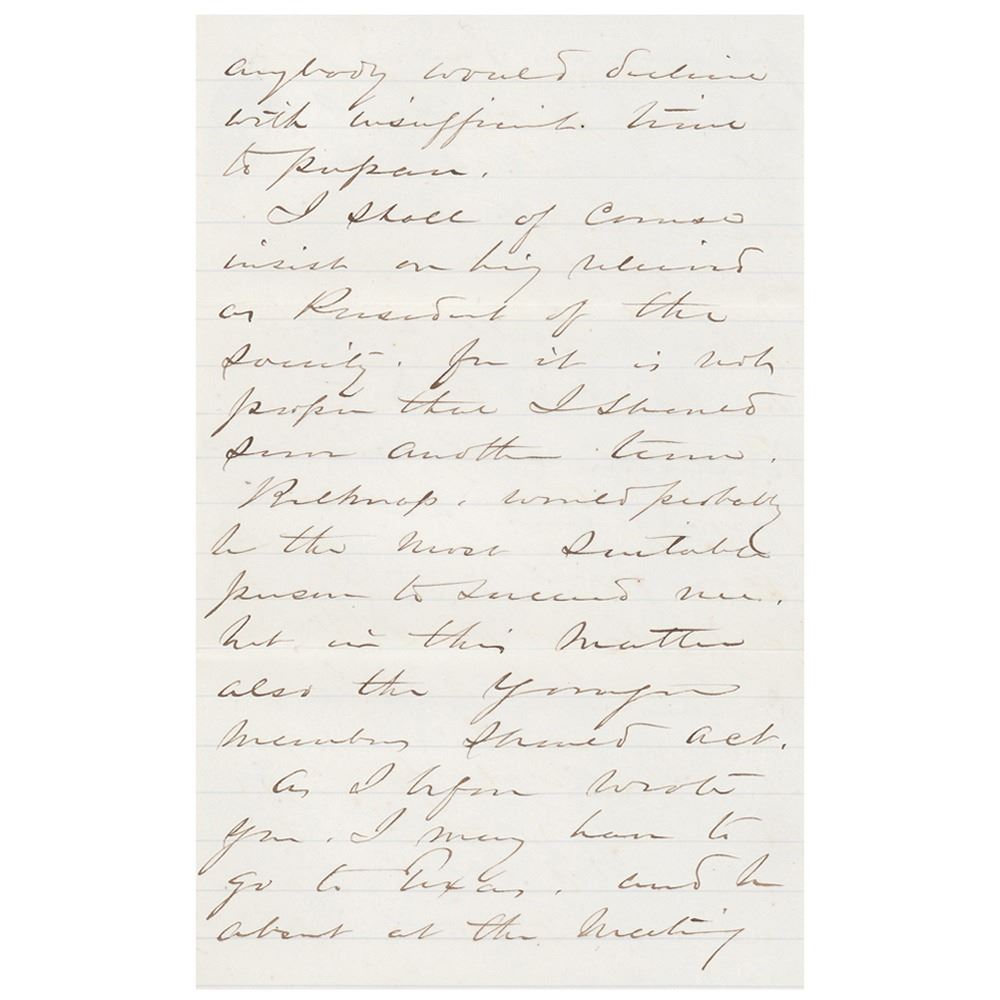 anybody would decline
with insufficient time
to prepare.
I shall of course
insist on being relieved
as President of the
Society. for it is not
proper that I should
serve another term.
Belknap. would probably
be the most suitable
person to succeed me.
but in this matter
also the younger
members should act.
As I before wrote
you. I may have to
go to Texas. and be
absent at the meeting